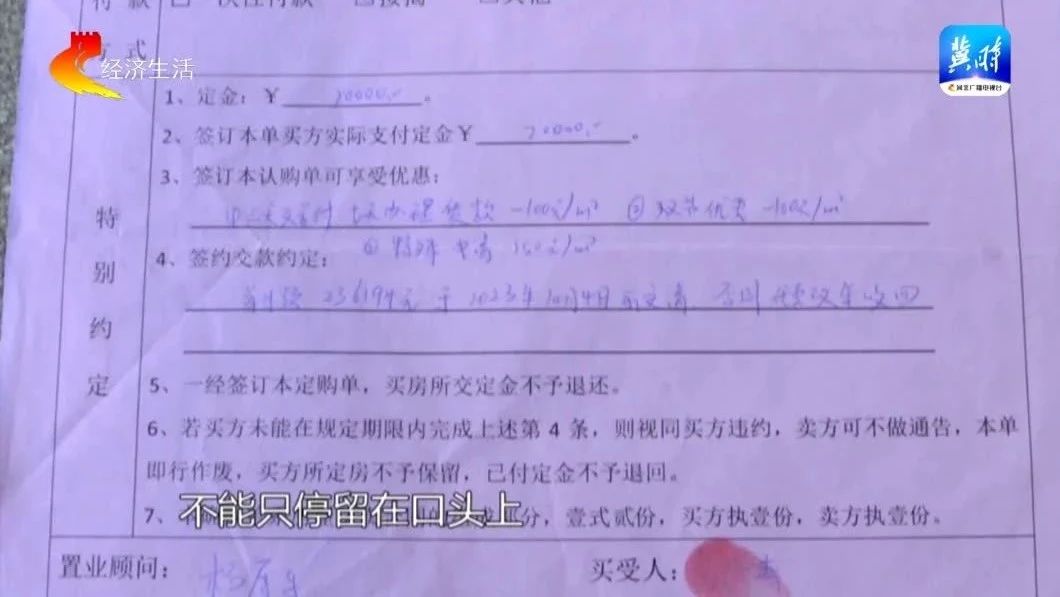 付款 □一次性付款 □按揭 □其他
方式
经济生活
冀时
河北广播电视台
特别约定
1、定金:¥ 20000.- 。
2、签订本单买方实际支付定金¥ 20000.- 。
3、签订本认购单可享受优惠:
-100元/m² ②双节优惠 -100元/m²
4、签约交款约定: ③特殊申请 150元/m²
首付款 236194元 于2023年10月4日前交清,否则优惠政策收回
5、一经签订本定购单,买房所交定金不予退还。
6、若买方未能在规定期限内完成上述第 4 条,则视同买方违约,卖方可不做通告,本单
即行作废,买方所定房不予保留,已付定金不予退回。
不能只停留在口头上
7、 份,壹式贰份,买方执壹份,卖方执壹份。
置业顾问:
买受人: